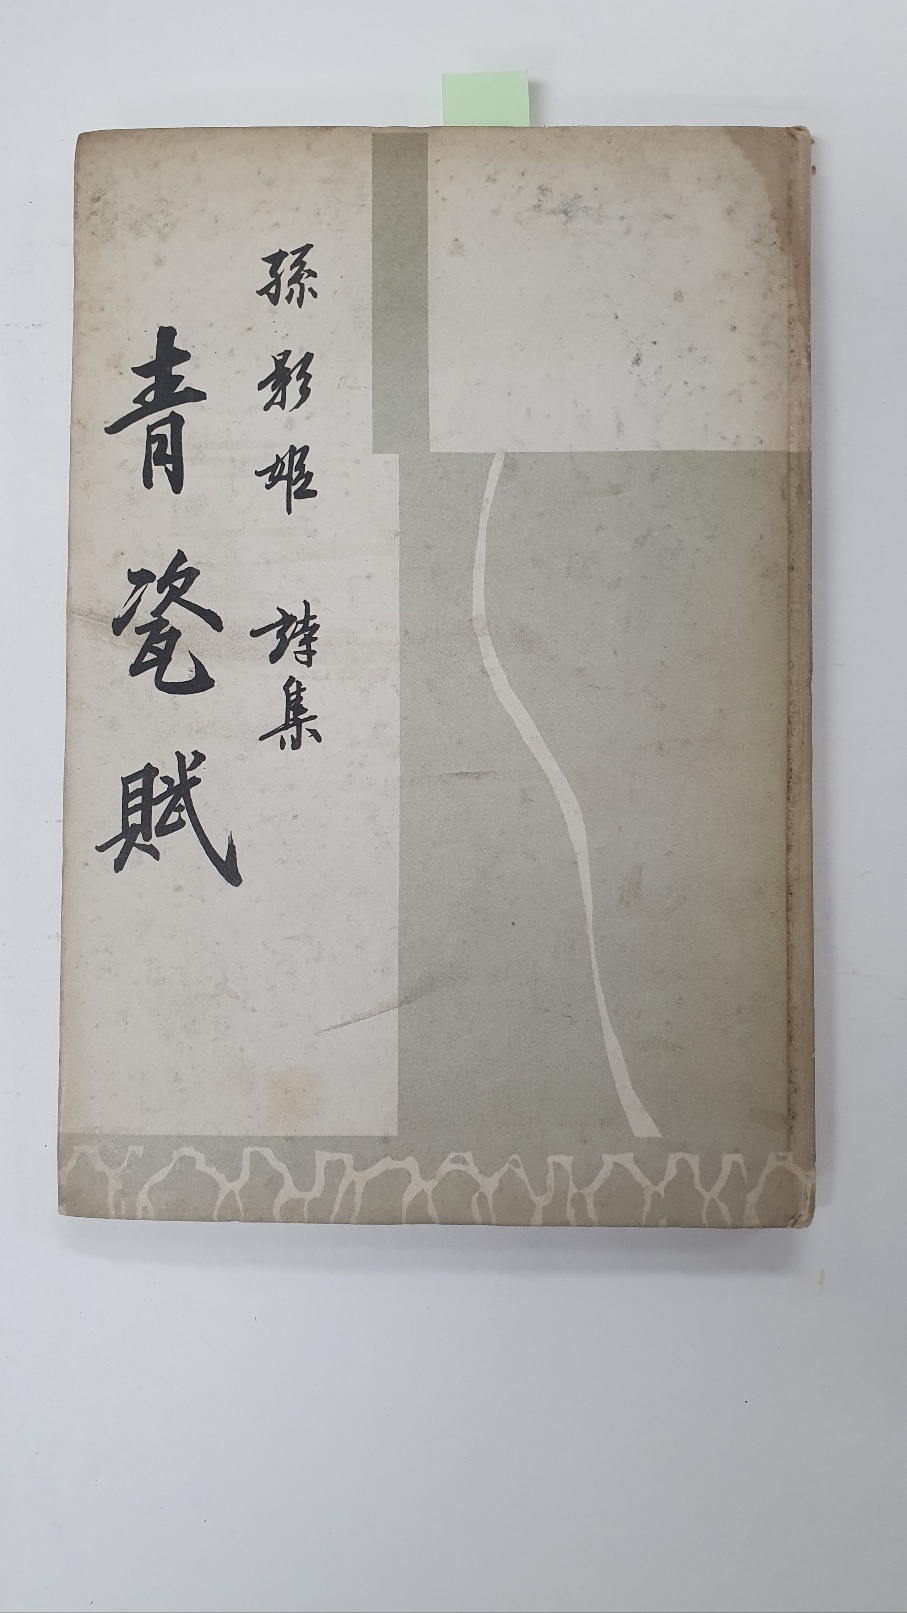 孫影姬 詩集
青瓷賦